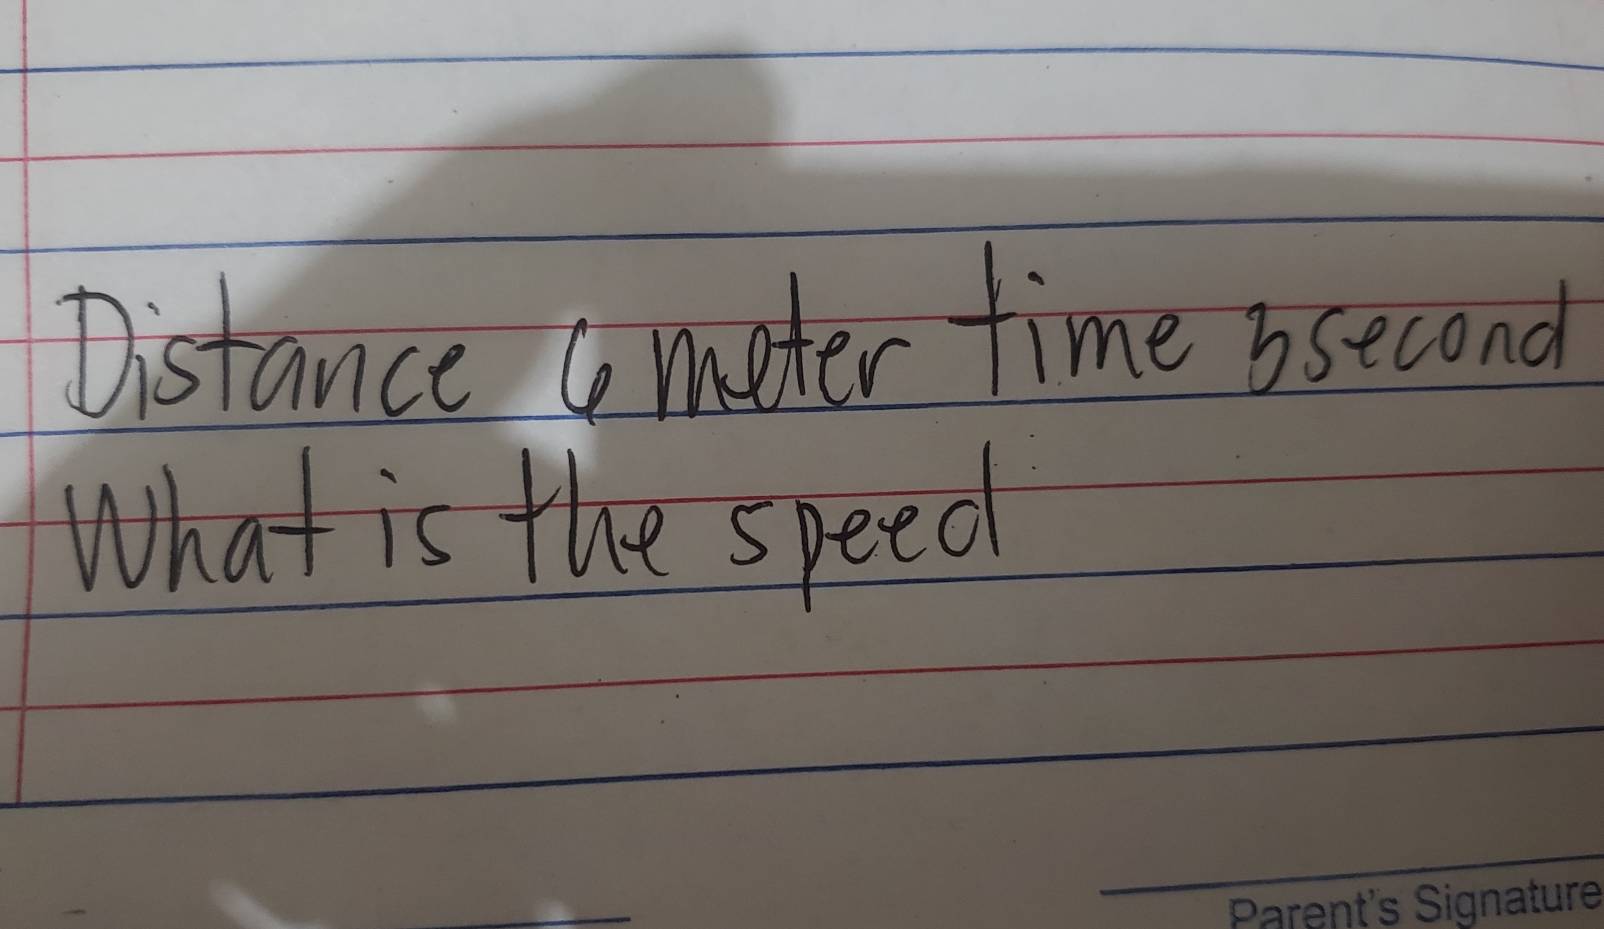 Distance 6 meter time 3second
What is the speed
Parent's Signature